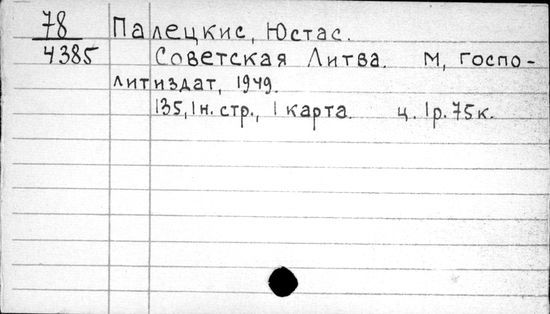 78 Палецкис, Юстас.
4385 Советская Литва. М, Госпо-
литиздат, 1949.
135, 1 н. стр., 1 карта. ц. 1 р. 75 к.